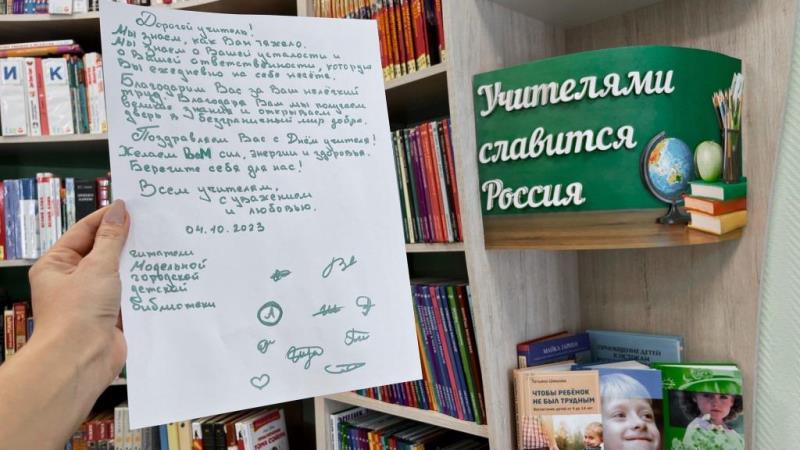 Дорогой учитель!
Мы знаем, как Вам тяжело.
Мы знаем о Вашей усталости и
о Вашей ответственности, которую
Вы ежедневно на себе несёте.
Благодарим Вас за Ваш нелёгкий
труд. Благодаря Вам мы получаем
знания и открываем
дверь в безграничный мир добра.
Поздравляем Вас с Днём учителя!
Желаем Вам сил, энергии и здоровья.
Берегите себя для нас!
Всем учителям,
с уважением
и любовью.
04.10.2023
читатели
Модельной
городской
детской
библиотеки
Учителями
славится
Россия
ЧТОБЫ РЕБЁНОК
НЕ БЫЛ ТРУДНЫМ